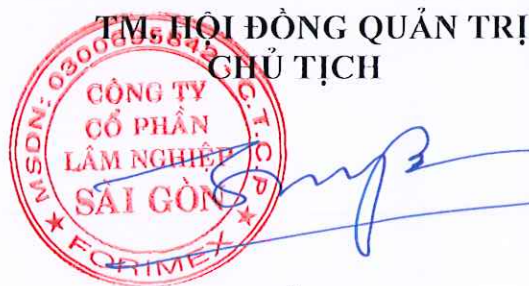 TM. HỘI ĐỒNG QUẢN TRỊ
CHỦ TỊCH
MSDN: 0300695842 C.T.C.P
CÔNG TY
CỔ PHẦN
LÂM NGHIỆP
SÀI GÒN
★ FORIMEX ★